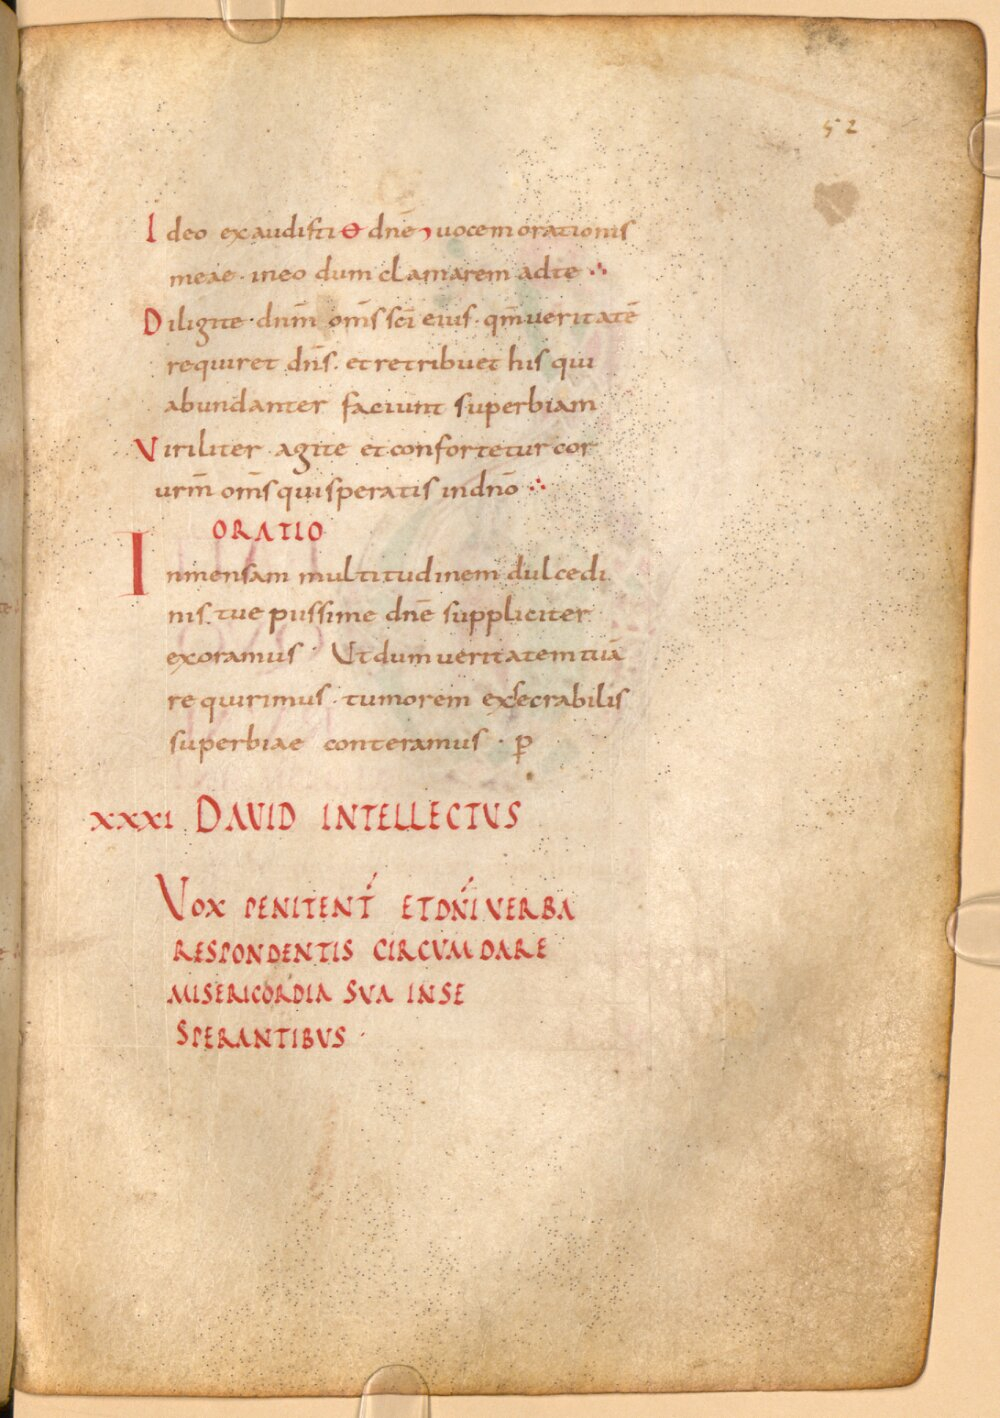 52
Ideo exaudisti ÷ dnē, uocem orationis
meae · ineo dum clamarem adte ∴
Diligite · dnm̄ om̄s sc̄i eius · qm̄ ueritatē
requiret dn̄s · et retribuet his qui
abundanter faciunt superbiam
Viriliter agite et confortetur cor
urm̄ om̄s qui speratis in dn̄o ∴
ORATIO
Inmensam multitudinem dulcedi
nis tue piissime dnē suppliciter
exoramus · Ut dum ueritatem tuā
requirimus · tumorem execrabilis
superbiae conteramus · p̄
XXXI DAVID INTELLECTVS
VOX PENITENT́ ET DN̄I VERBA
RESPONDENTIS CIRCVMDARE
MISERICORDIA SVA IN SE
SPERANTIBVS ·